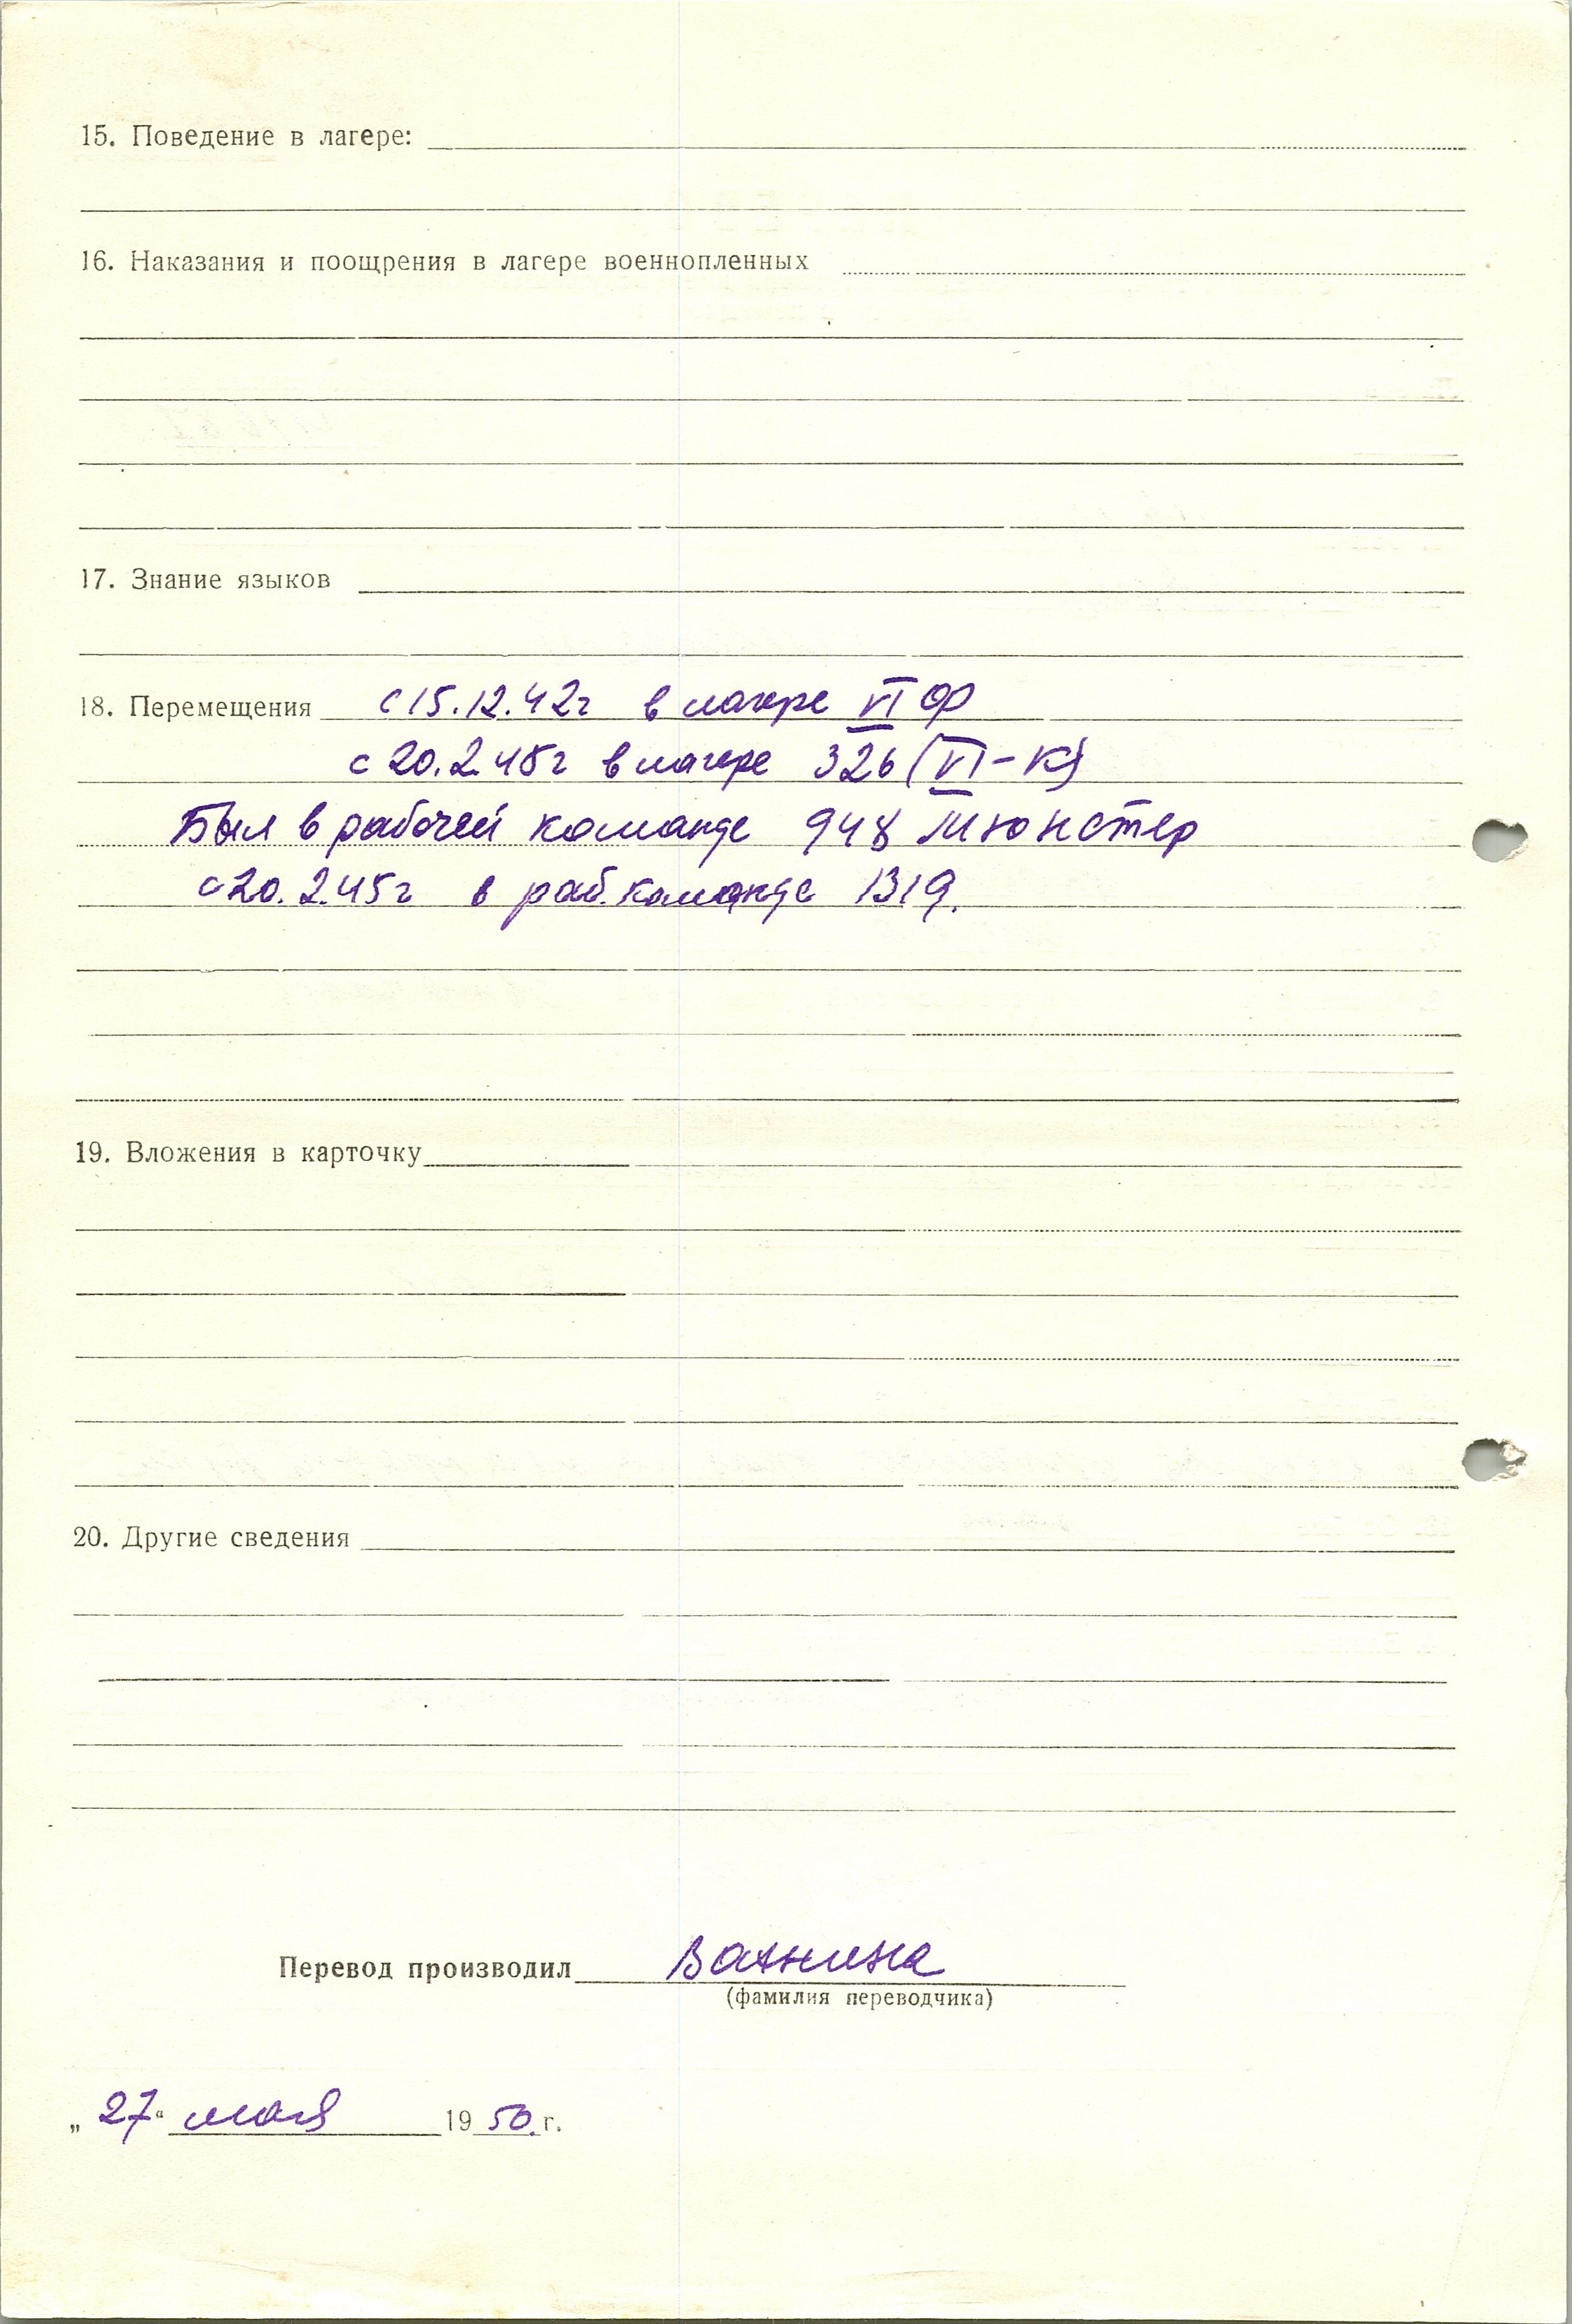 15. Поведение в лагере:
16. Наказания и поощрения в лагере военнопленных
17. Знание языков
18. Перемещения с 15.12.42г в лагере VI Ф
с 20.2.45г в лагере 326 (VI-К)
Был в рабочей команде 948 Мюнстер
с 20.2.45г в раб. команде 1319.
19. Вложения в карточку
20. Другие сведения
Перевод производил Ванина
(фамилия переводчика)
„27“ мая 1950.г.